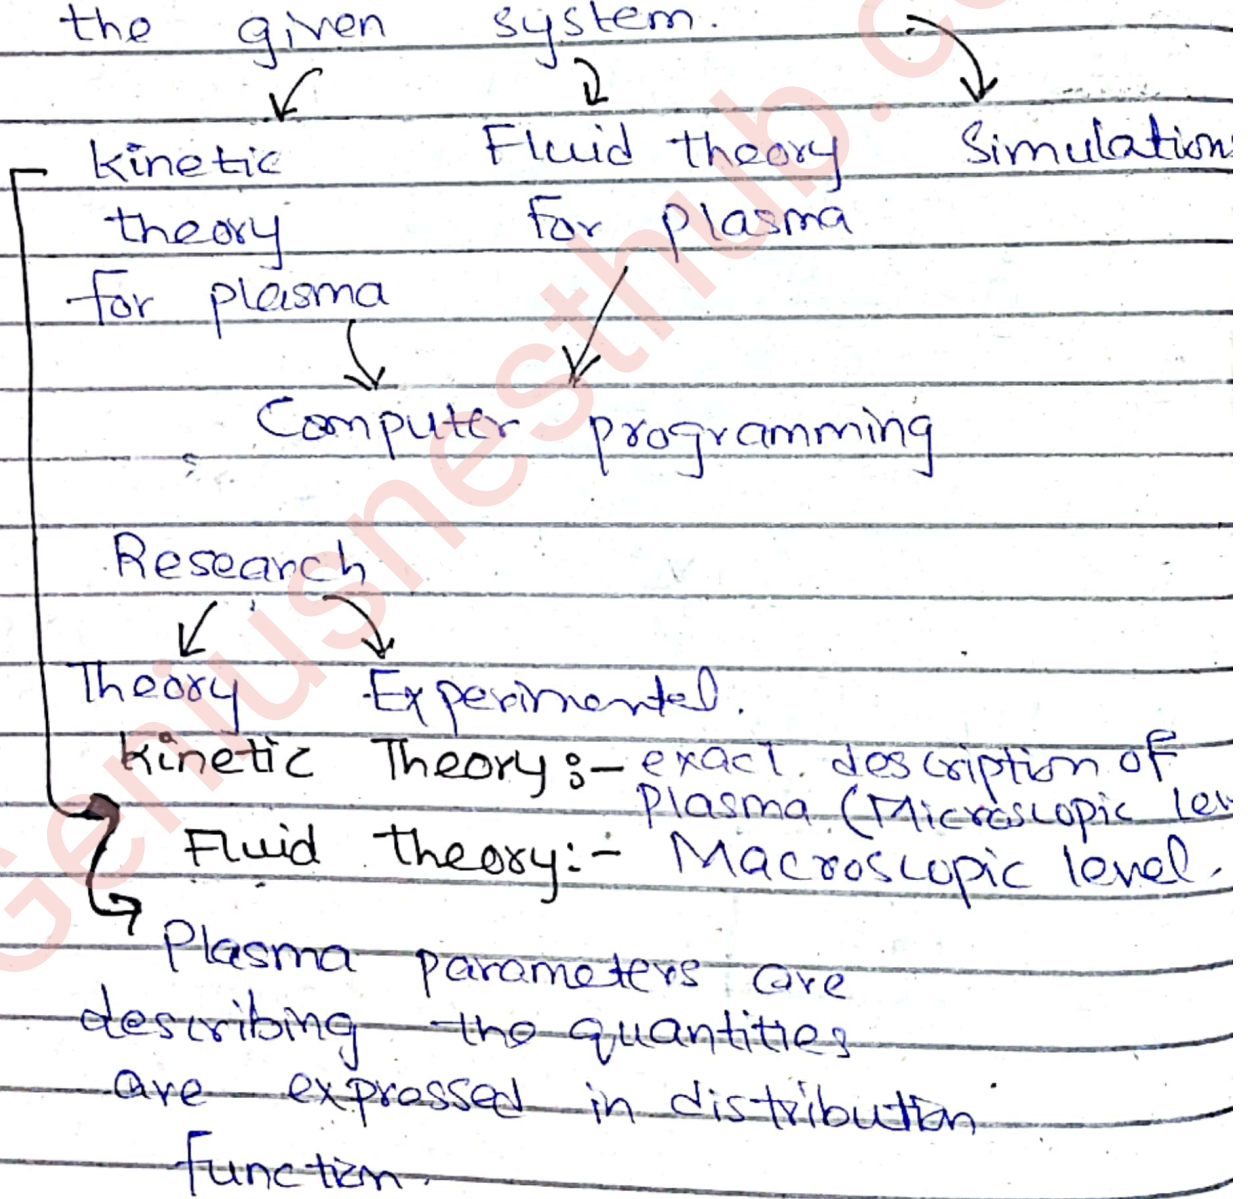 the given system.
Kinetic Fluid theory Simulation
theory For plasma
for plasma
Computer programming
Research
Theory Experimental.
Kinetic Theory:- exact. description of
Plasma (Microscopic lev
Fluid theory:- Macroscopic level.
Plasma parameters are
describing the quantities
are expressed in distribution
function.
Geniusnesthub.co